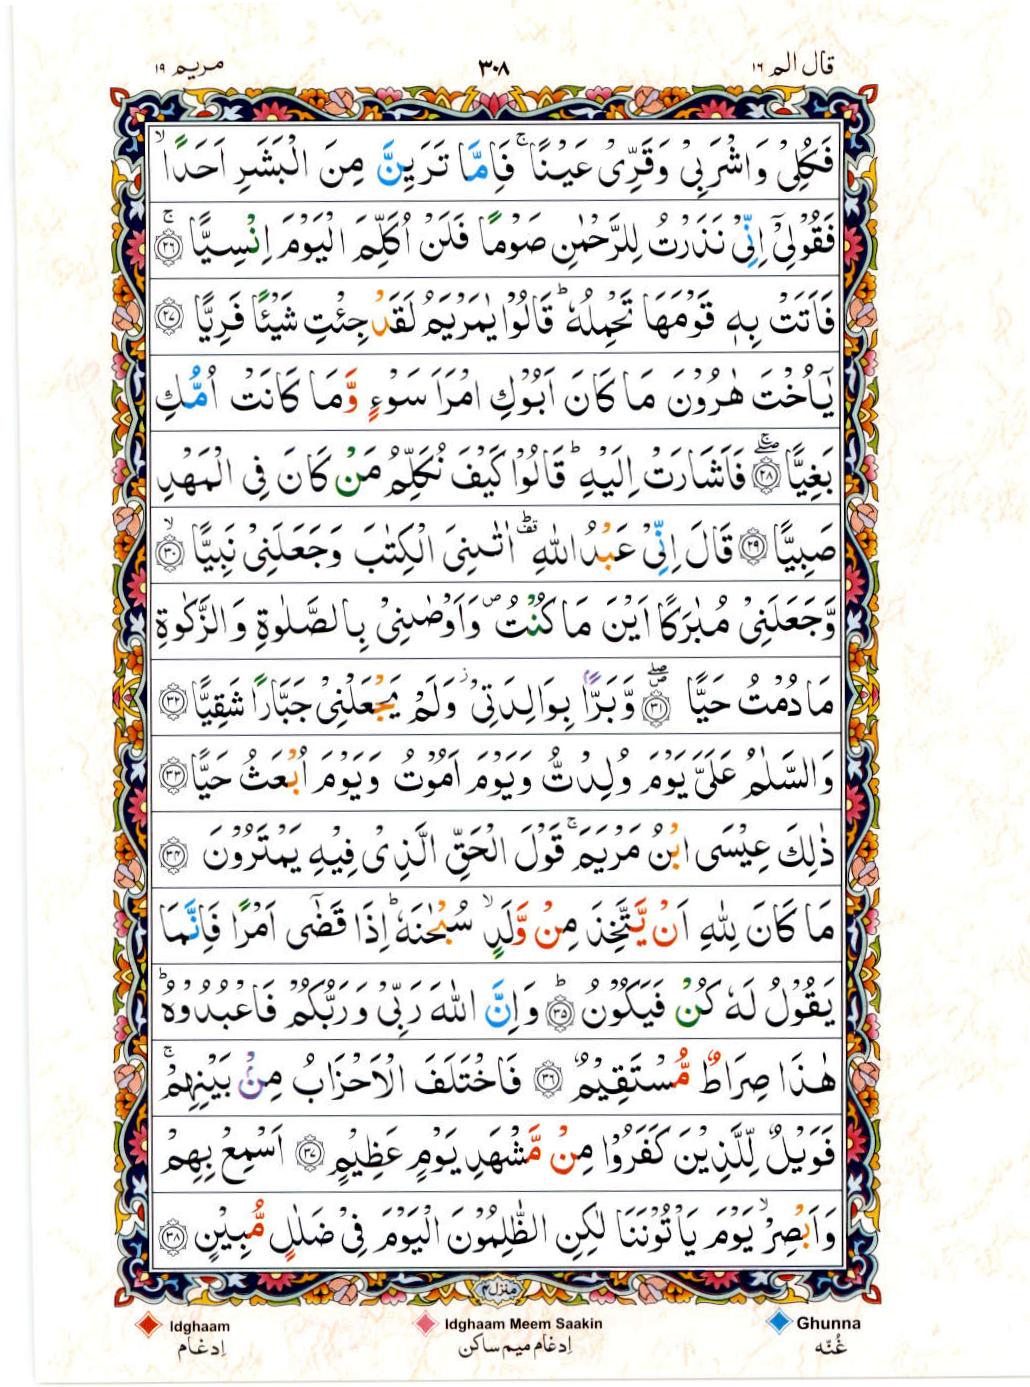 قال الم ١٦
٣٠٨
مريم ١٩
فَكُلِىْ وَاشْرَبِىْ وَقَرِّىْ عَيْنًا ۚ فَاِمَّا تَرَيِنَّ مِنَ الْبَشَرِ اَحَدًا ۙ
فَقُوْلِىْٓ اِنِّىْ نَذَرْتُ لِلرَّحْمٰنِ صَوْمًا فَلَنْ اُكَلِّمَ الْيَوْمَ اِنْسِيًّا ۚ ﴿٢٦﴾
فَاَتَتْ بِهٖ قَوْمَهَا تَحْمِلُهٗ ؕ قَالُوْا يٰمَرْيَمُ لَقَدْ جِئْتِ شَيْئًا فَرِيًّا ﴿٢٧﴾
يٰۤاُخْتَ هٰرُوْنَ مَا كَانَ اَبُوْكِ امْرَاَ سَوْءٍ وَّمَا كَانَتْ اُمُّكِ
بَغِيًّا ۖۚ ﴿٢٨﴾ فَاَشَارَتْ اِلَيْهِ ؕ قَالُوْا كَيْفَ نُكَلِّمُ مَنْ كَانَ فِى الْمَهْدِ
صَبِيًّا ﴿٢٩﴾ قَالَ اِنِّىْ عَبْدُ اللّٰهِ ؕ قف اٰتٰىنِىَ الْكِتٰبَ وَجَعَلَنِىْ نَبِيًّا ۙ ﴿٣٠﴾
وَّجَعَلَنِىْ مُبٰرَكًا اَيْنَ مَا كُنْتُ ۪ وَاَوْصٰنِىْ بِالصَّلٰوةِ وَالزَّكٰوةِ
مَا دُمْتُ حَيًّا ۪ۖ ﴿٣١﴾ وَّبَرًّۢا بِوَالِدَتِىْ ز وَلَمْ يَجْعَلْنِىْ جَبَّارًا شَقِيًّا ﴿٣٢﴾
وَالسَّلٰمُ عَلَىَّ يَوْمَ وُلِدْتُّ وَيَوْمَ اَمُوْتُ وَيَوْمَ اُبْعَثُ حَيًّا ﴿٣٣﴾
ذٰلِكَ عِيْسَى ابْنُ مَرْيَمَ ۚ قَوْلَ الْحَقِّ الَّذِىْ فِيْهِ يَمْتَرُوْنَ ﴿٣٤﴾
مَا كَانَ لِلّٰهِ اَنْ يَّتَّخِذَ مِنْ وَّلَدٍ ۙ سُبْحٰنَهٗ ؕ اِذَا قَضٰٓى اَمْرًا فَاِنَّمَا
يَقُوْلُ لَهٗ كُنْ فَيَكُوْنُ ؕ ﴿٣٥﴾ وَاِنَّ اللّٰهَ رَبِّىْ وَرَبُّكُمْ فَاعْبُدُوْهُ ؕ
هٰذَا صِرَاطٌ مُّسْتَقِيْمٌ ﴿٣٦﴾ فَاخْتَلَفَ الْاَحْزَابُ مِنْۢ بَيْنِهِمْ ۚ
فَوَيْلٌ لِّلَّذِيْنَ كَفَرُوْا مِنْ مَّشْهَدِ يَوْمٍ عَظِيْمٍ ﴿٣٧﴾ اَسْمِعْ بِهِمْ
وَاَبْصِرْ ۙ يَوْمَ يَاْتُوْنَنَا لٰكِنِ الظّٰلِمُوْنَ الْيَوْمَ فِىْ ضَلٰلٍ مُّبِيْنٍ ﴿٣٨﴾
منزل ٤
Idghaam
Idghaam Meem Saakin
Ghunna
اِدغام
اِدغام ميم ساكن
غُنّه